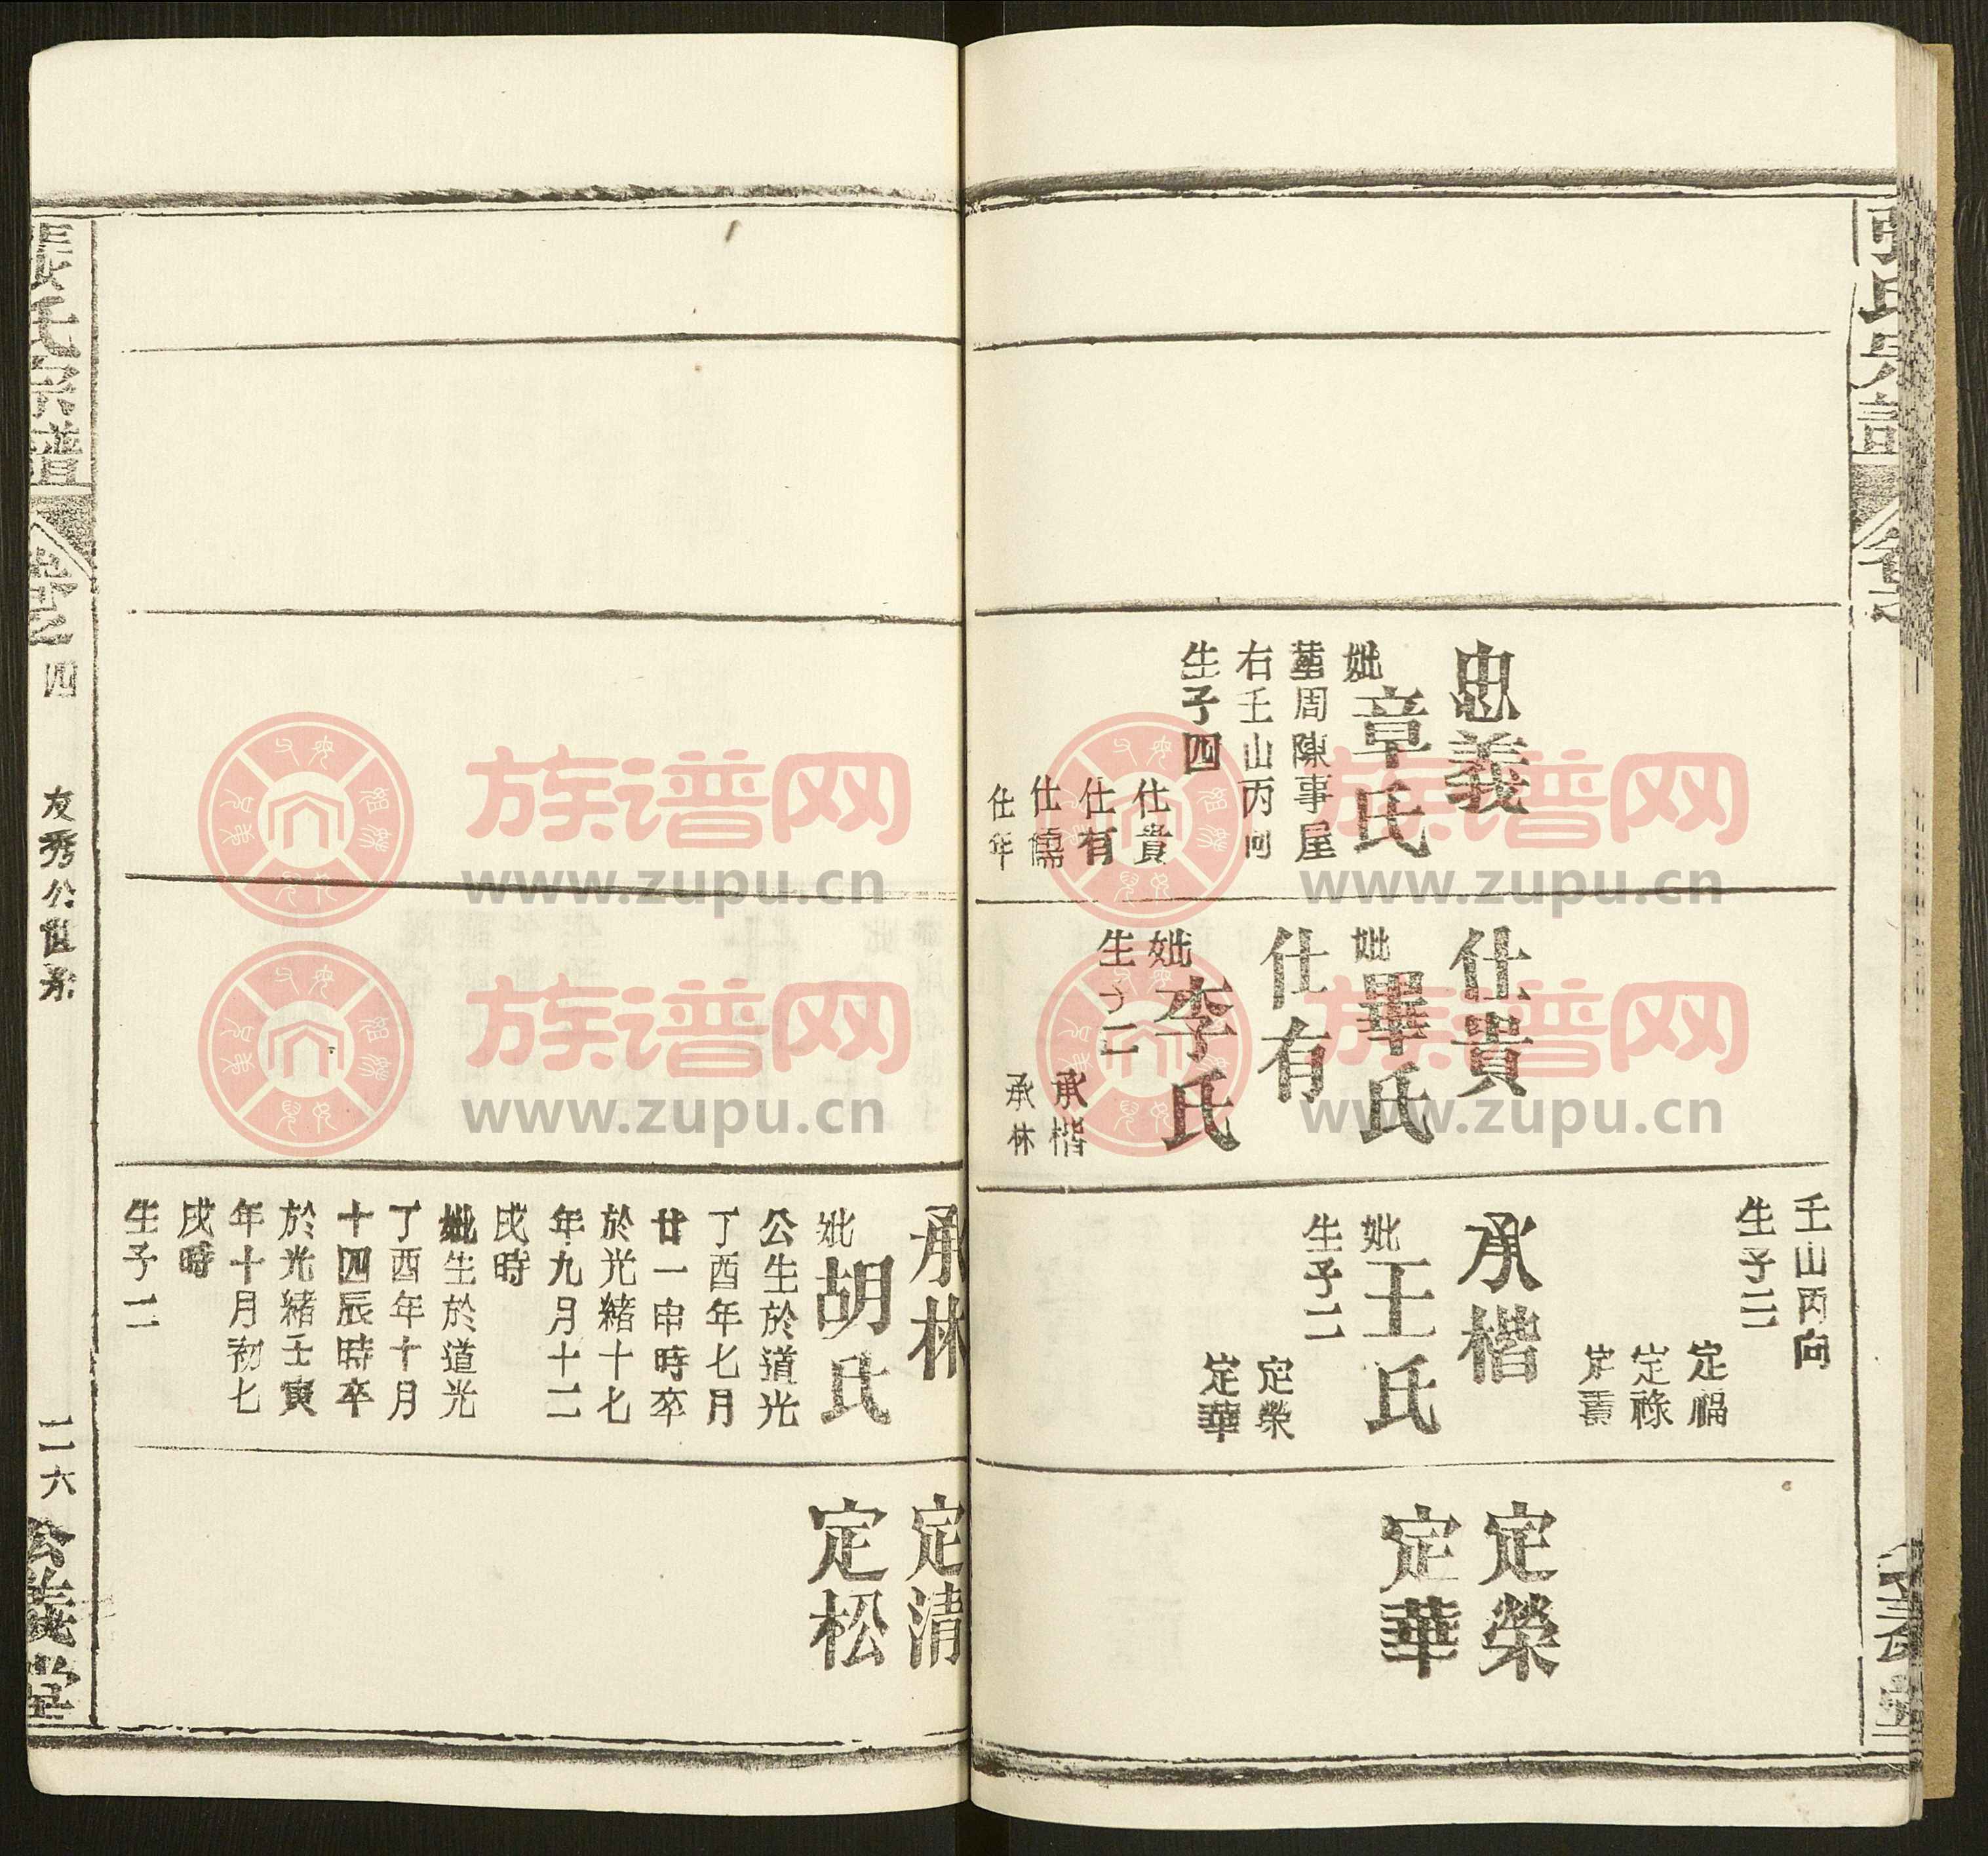 忠義
妣章氏
塟周陳事屋
右壬山丙向
生子四
仕貴
仕有
仕儒
仕年
仕貴
妣畢氏
仕有
妣李氏
生子二
承楷
承林
壬山丙向
生子三
定福
定祿
定壽
承楷
妣王氏
生子二
定榮
定華
定榮
定華
承林
妣胡氏
公生於道光
丁酉年七月
廿一申時卒
於光緒十七
年九月十二
戌時
妣生於道光
丁酉年十月
十四辰時卒
於光緒壬寅
年十月初七
戌時
生子二
定清
定松
張氏宗譜
卷之四
友秀公世系
二六
公義堂
族谱网
www.zupu.cn
族谱网
www.zupu.cn
族谱网
www.zupu.cn
族谱网
www.zupu.cn